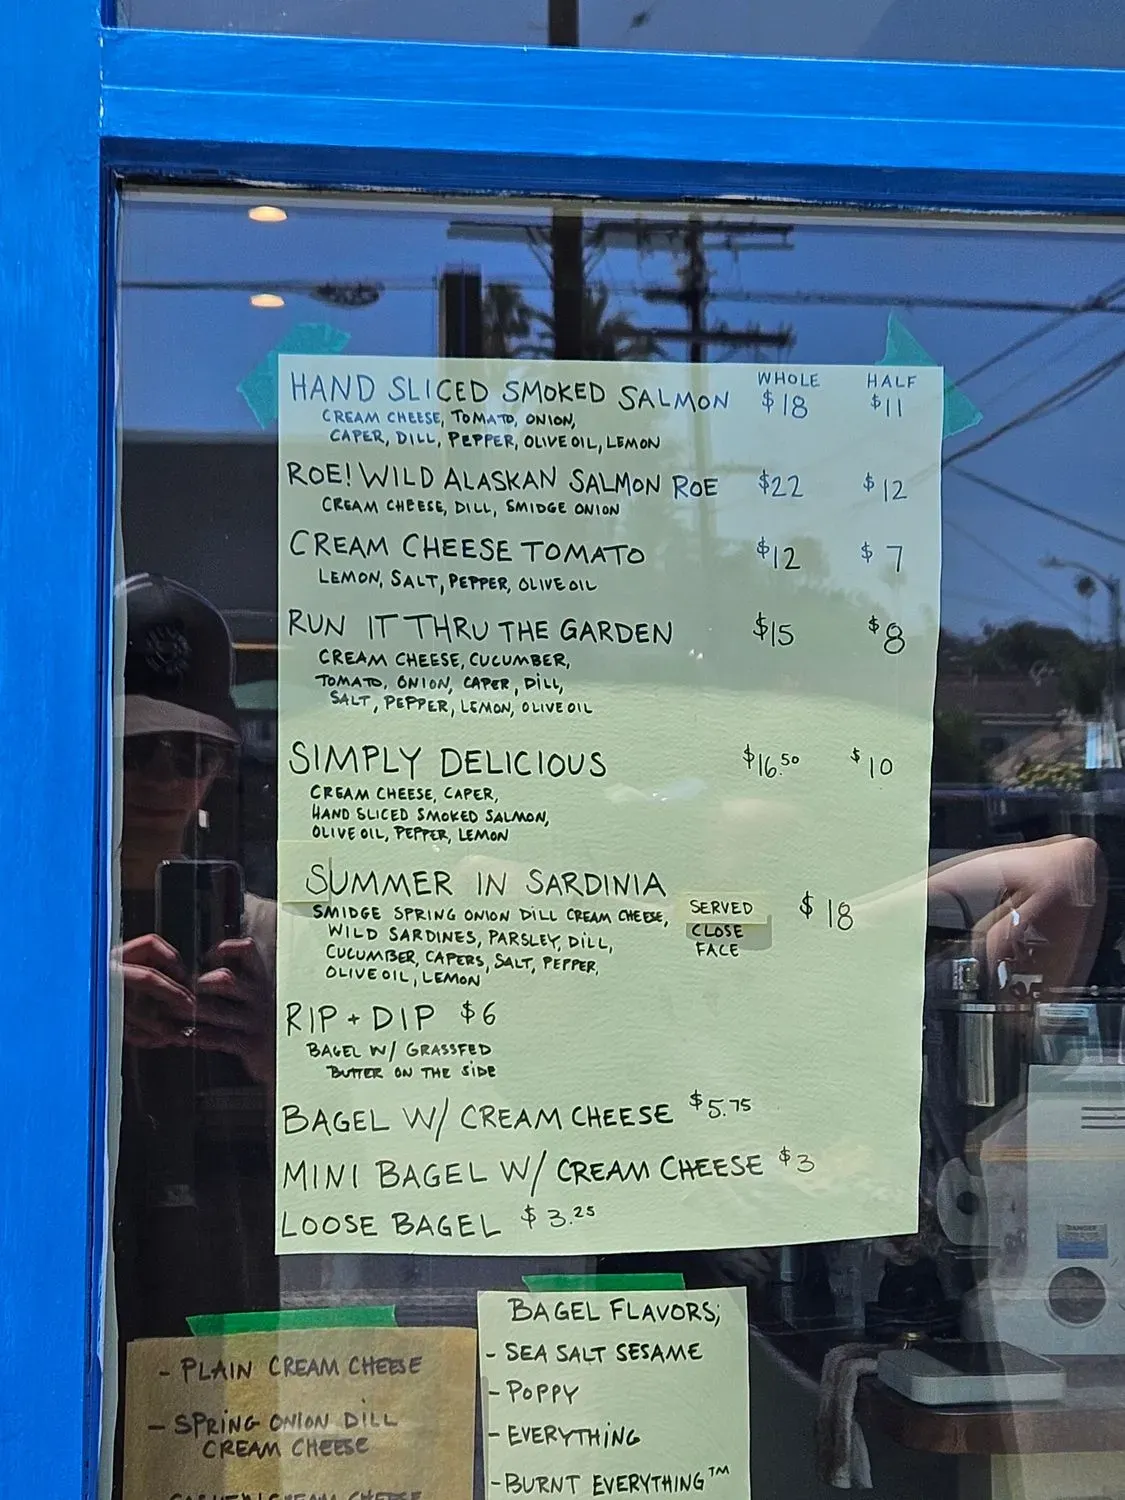 WHOLE HALF
HAND SLICED SMOKED SALMON $18 $11
CREAM CHEESE, TOMATO, ONION,
CAPER, DILL, PEPPER, OLIVE OIL, LEMON
ROE! WILD ALASKAN SALMON ROE $22 $12
CREAM CHEESE, DILL, SMIDGE ONION
CREAM CHEESE TOMATO $12 $7
LEMON, SALT, PEPPER, OLIVE OIL
RUN IT THRU THE GARDEN $15 $8
CREAM CHEESE, CUCUMBER,
TOMATO, ONION, CAPER, DILL,
SALT, PEPPER, LEMON, OLIVE OIL
SIMPLY DELICIOUS $16.50 $10
CREAM CHEESE, CAPER,
HAND SLICED SMOKED SALMON,
OLIVE OIL, PEPPER, LEMON
SUMMER IN SARDINIA $18
SMIDGE SPRING ONION DILL CREAM CHEESE,
WILD SARDINES, PARSLEY, DILL,
CUCUMBER, CAPERS, SALT, PEPPER,
OLIVE OIL, LEMON
SERVED
CLOSE
FACE
RIP + DIP $6
BAGEL W/ GRASSFED
BUTTER ON THE SIDE
BAGEL W/ CREAM CHEESE $5.75
MINI BAGEL W/ CREAM CHEESE $3
LOOSE BAGEL $3.25
- PLAIN CREAM CHEESE
- SPRING ONION DILL
CREAM CHEESE
CREAM CHEESE
BAGEL FLAVORS;
- SEA SALT SESAME
- POPPY
- EVERYTHING
- BURNT EVERYTHING™
DANGER